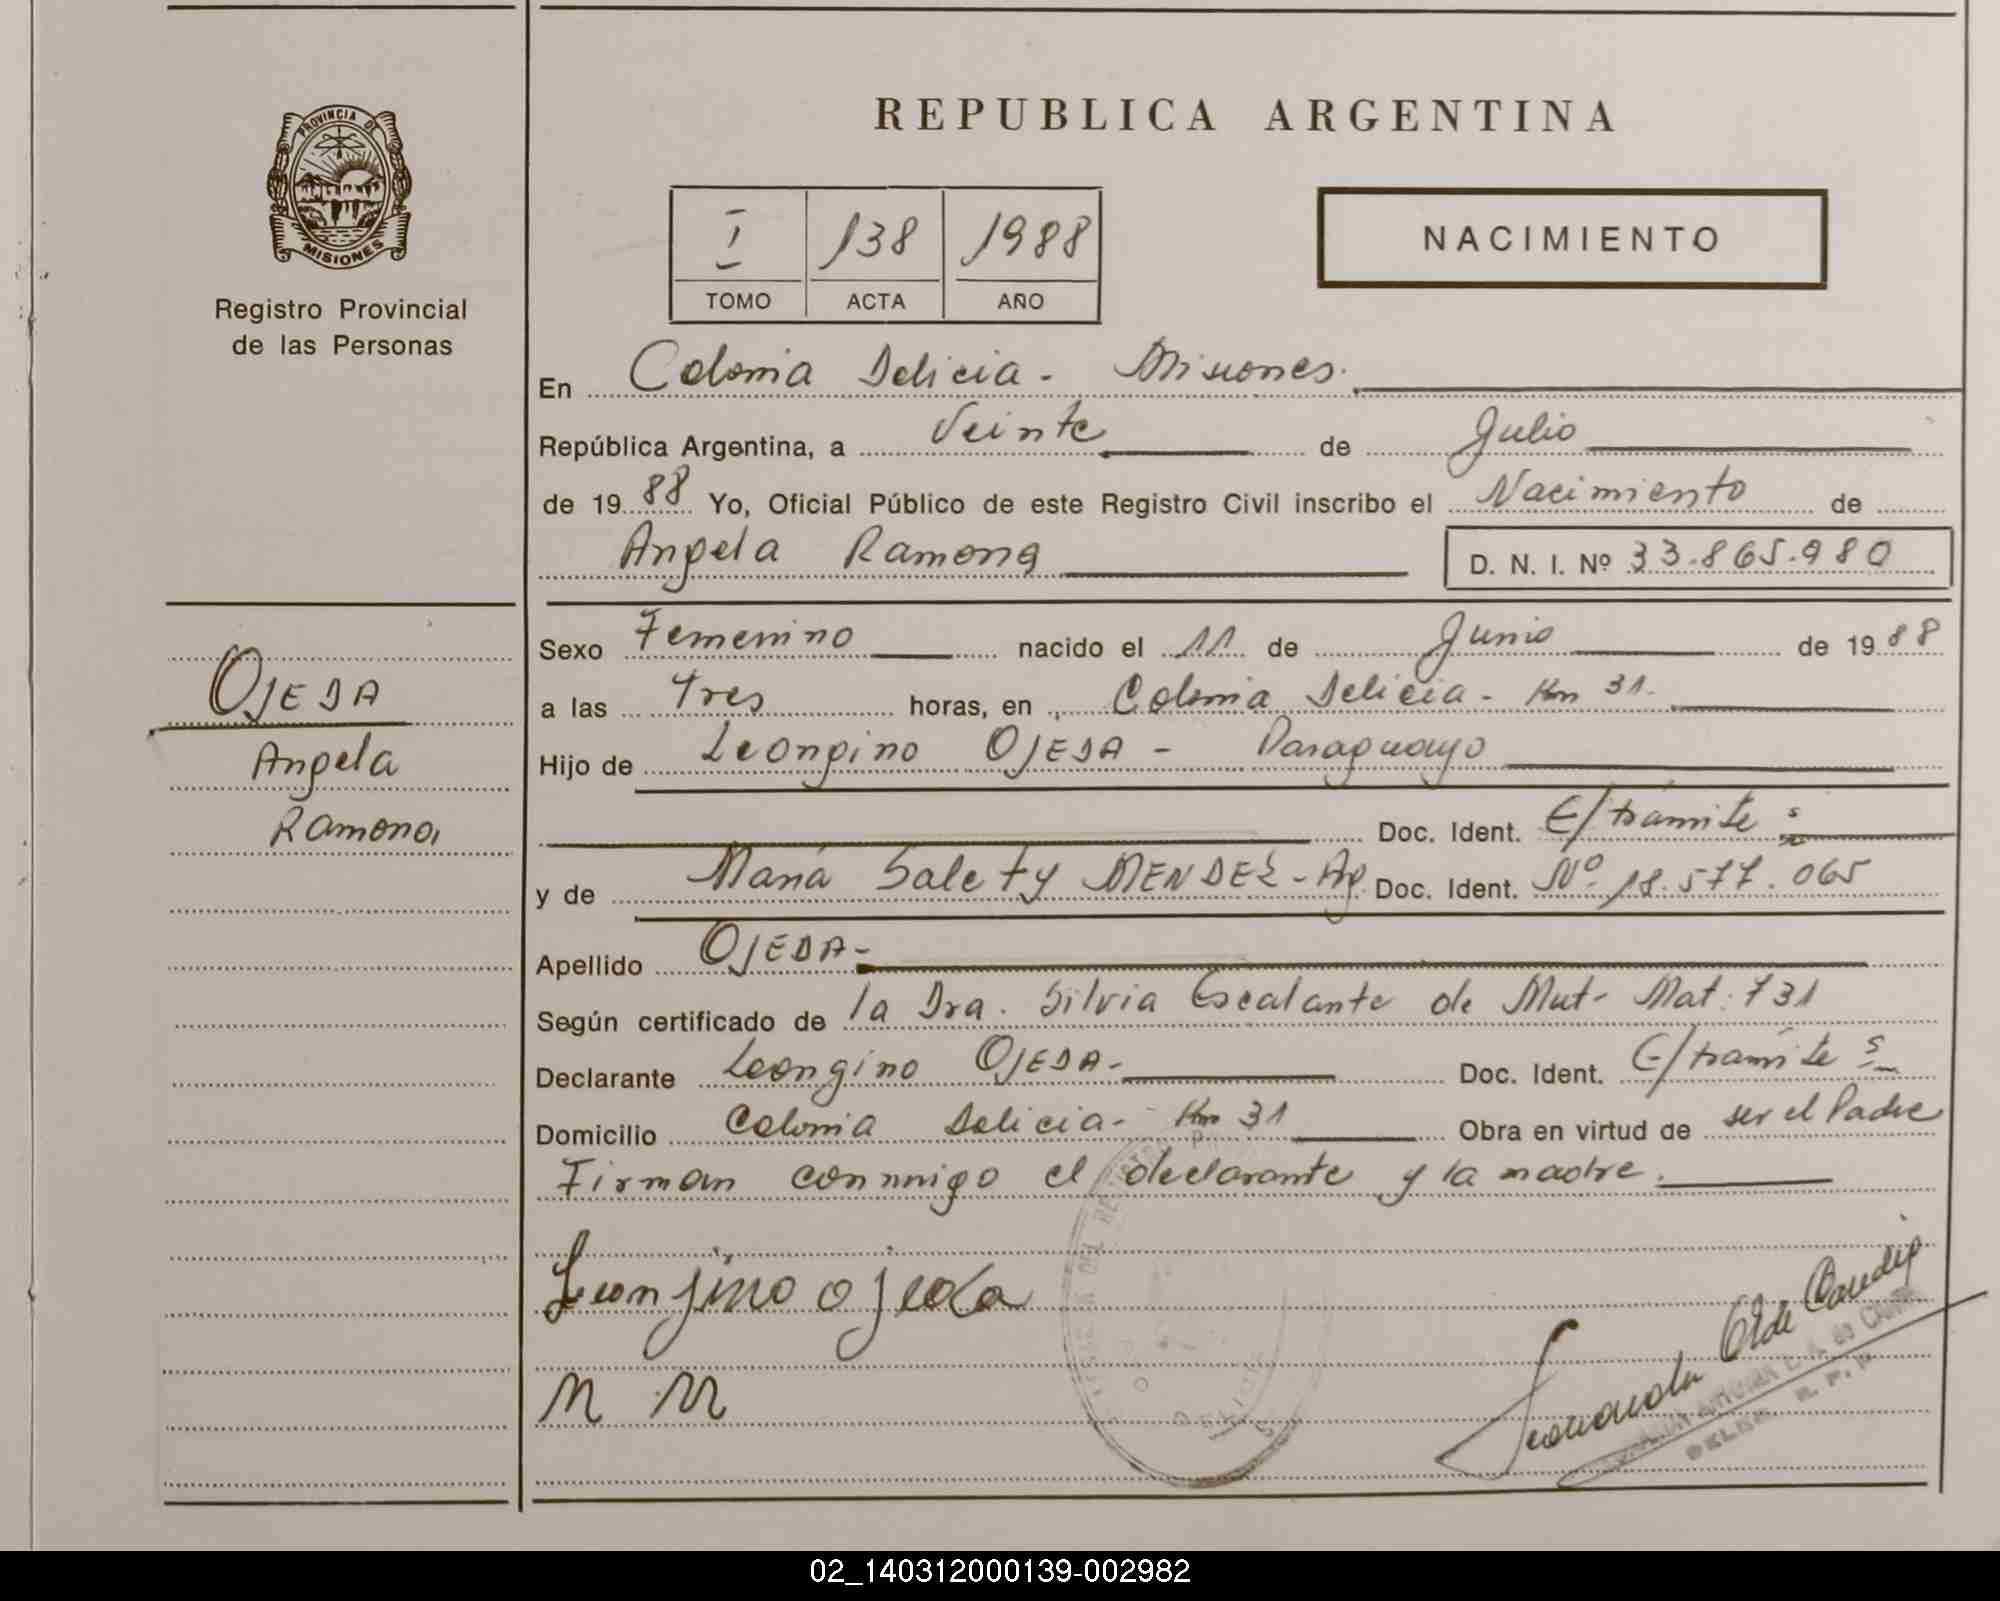 PROVINCIA DE
MISIONES
Registro Provincial
de las Personas
OJEDA
Angela
Ramona
REPUBLICA ARGENTINA
I 138 1988
TOMO ACTA AÑO
NACIMIENTO
En Colonia Delicia - Misiones.
República Argentina, a Veinte de Julio
de 1988 Yo, Oficial Público de este Registro Civil inscribo el Nacimiento de
Angela Ramona D. N. I. Nº 33.865.980
Sexo Femenino nacido el 11 de Junio de 1988
a las Tres horas, en Colonia Delicia - Km 31.
Hijo de Leongino OJEDA - Paraguayo
Doc. Ident. E/trámite
y de María Salety MENDEZ - Ag. Doc. Ident. Nº 18.577.065
Apellido OJEDA -
Según certificado de la Dra. Silvia Escalante de Mut - Mat: 731
Declarante Leongino OJEDA - Doc. Ident. E/trámite
Domicilio Colonia Delicia - Km 31 Obra en virtud de ser el Padre
Firman conmigo el declarante y la madre.
Leonjino ojeda
M M
02_140312000139-002982